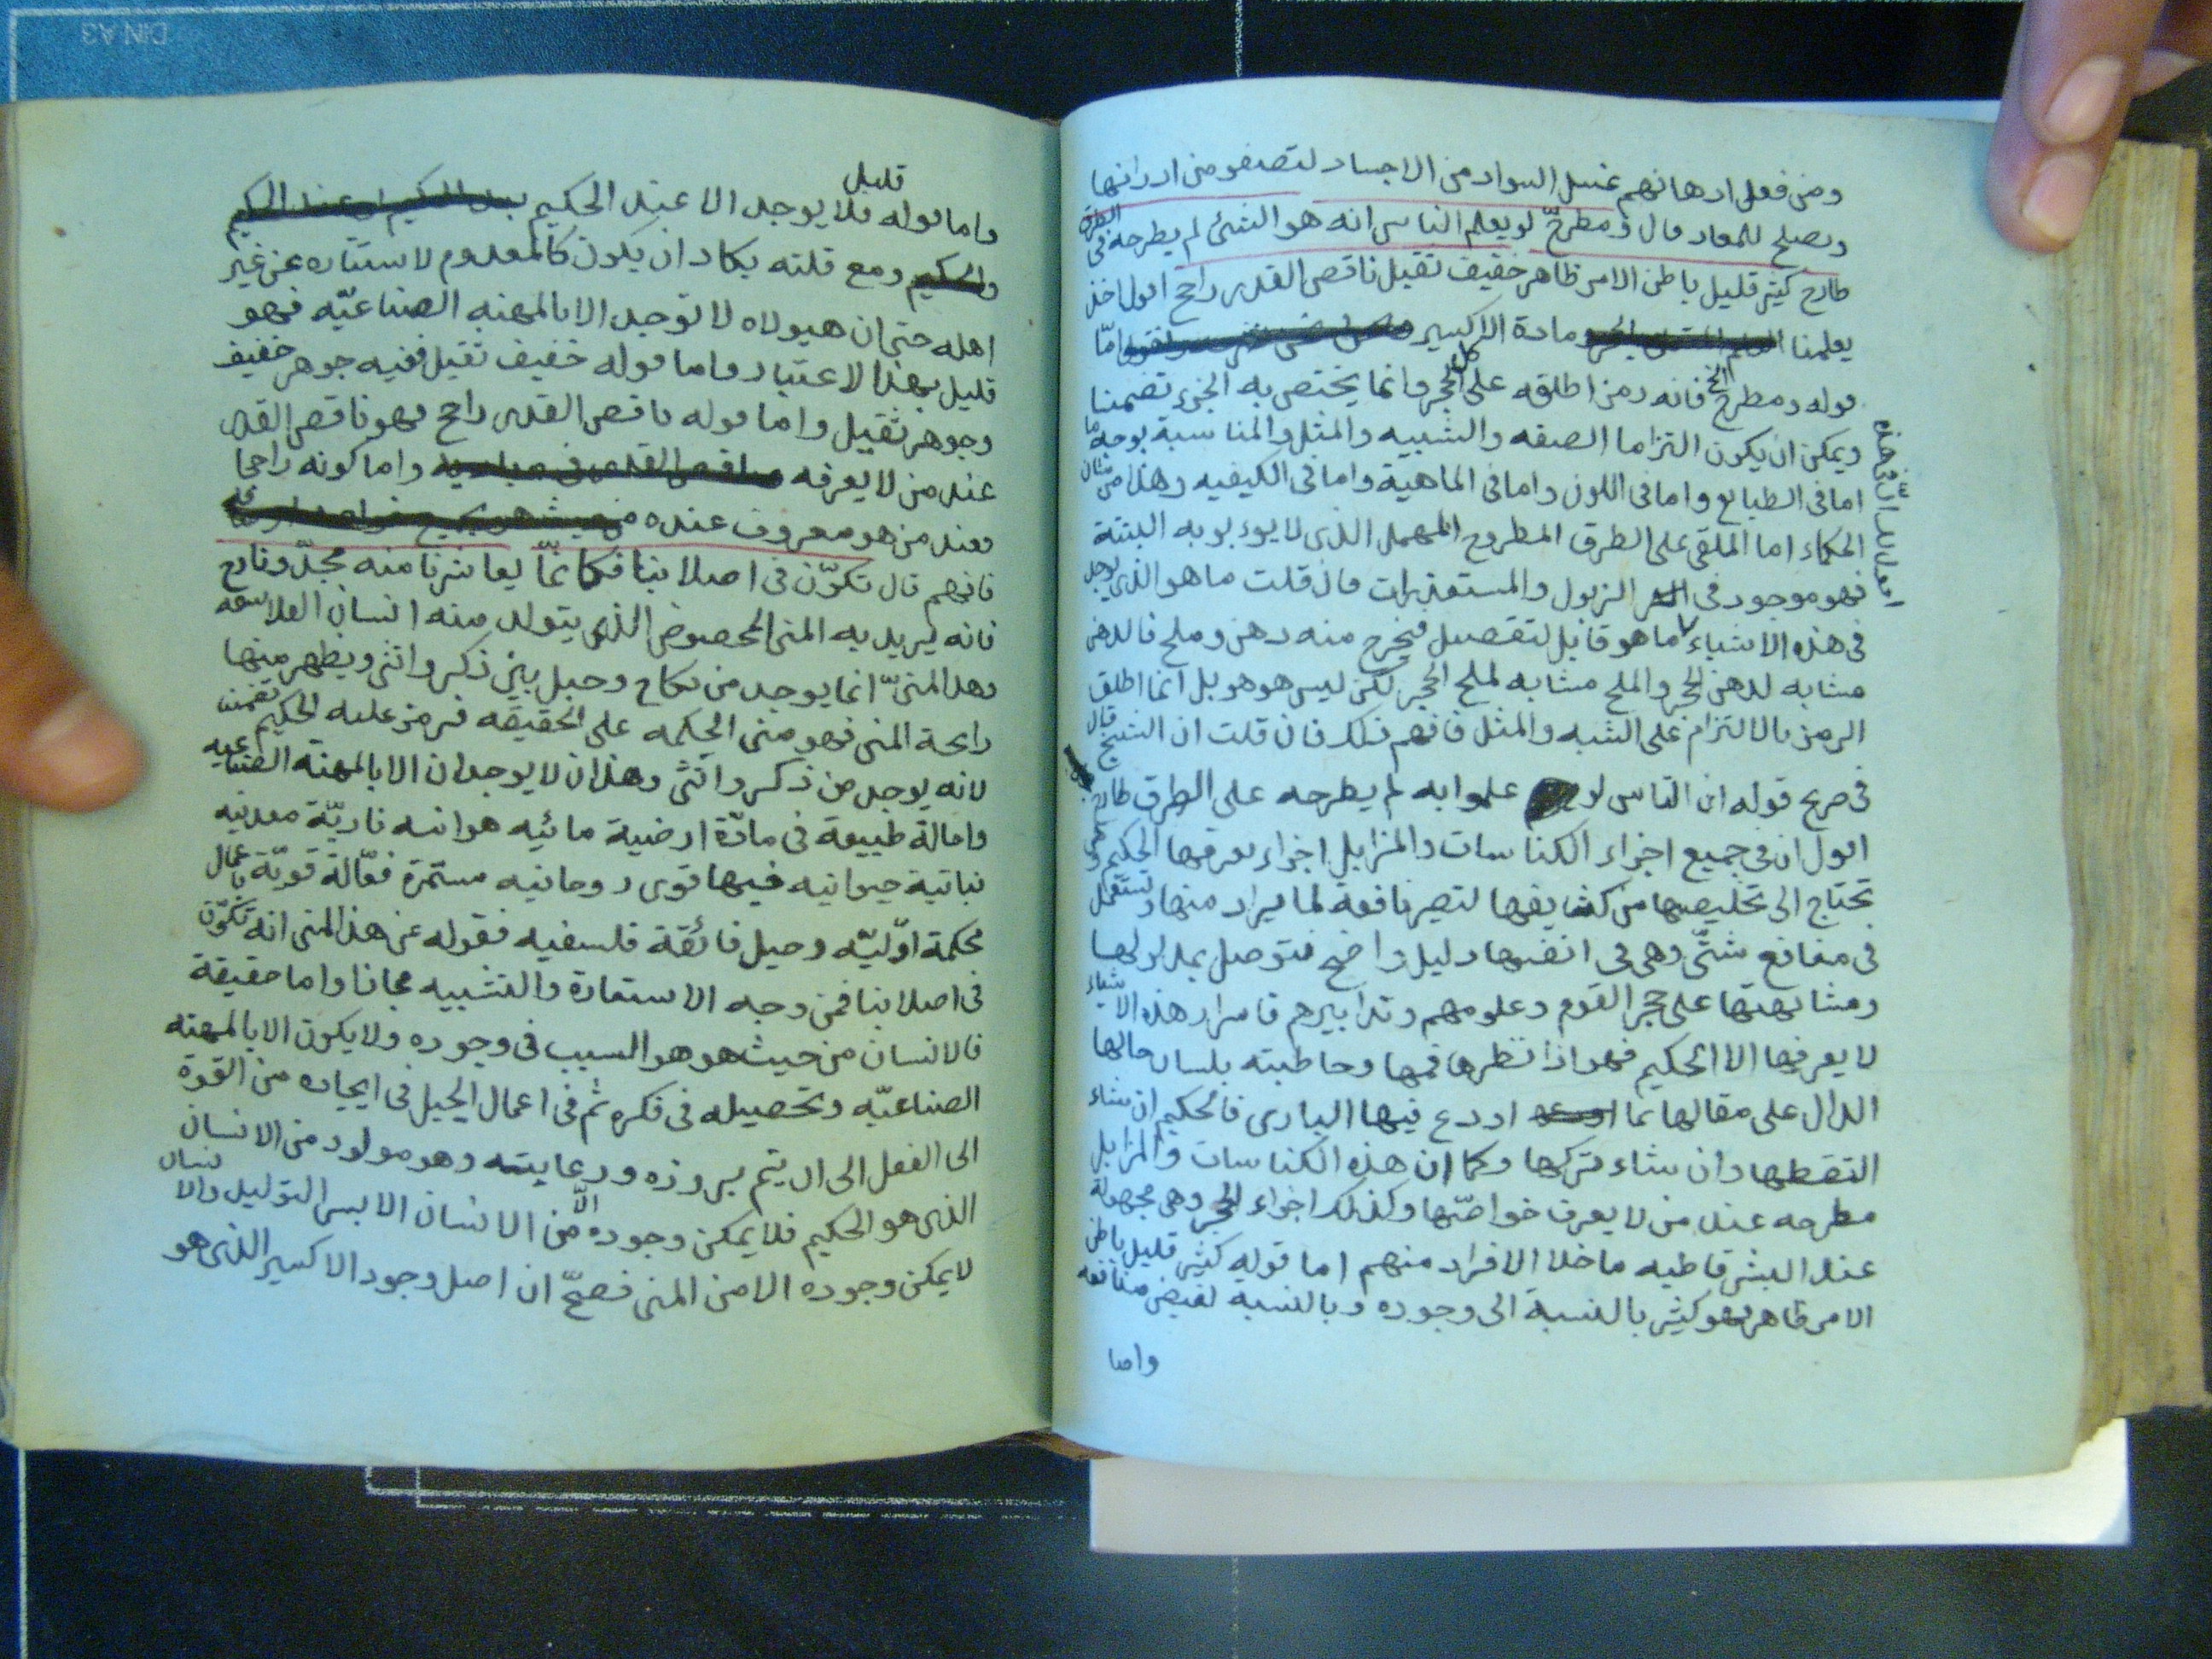 ومن فعل ادهانهم غسل السواد من الاجساد لتصفو من ادرانها
وتصلح للمعاد قال ومطرح لو يعلم الناس انه هو الشئ لم يطرحه فى الطرق
طارح كثير قليل باطن الامر ظاهر خفيف ثقيل ناقص القدر راجح اقول اخذ
يعلمنا مادة الاكسير امّا
قوله ومطرح الخ فانه رمز اطلقه على كل الحجر وانما يختص به الجزء تضمنا
ويمكن ان يكون التزاما الصفه والشبيه والمثل والمناسبة بوجه ما
اما فى الطبايع واما فى اللون واما فى الماهية واما فى الكيفيه وهذا من
الحكماء اما الملقى على الطرق المطروح المهمل الذى لا يوبه به البتة
فهو موجود فى الزبول والمستقذرات فان قلت ما هو الذى يوجد
فى هذه الاشياء ما هو قابل لتفصيل فيخرج منه دهن وملح فالدهن
مشابه لدهن الحجر والملح مشابه لملح الحجر لكن ليس هو هو بل انما اطلق
الرمز بالالتزام على الشبه والمثل فافهم ذلك فان قلت ان الشيخ قال
فى صريح قوله ان الناس لو علموا به لم يطرحه على الطرق طارح
اقول ان فى جميع اجزاء الكناسات والمزابل اجزاء يعرفها الحكيم
تحتاج الى تخليصها من كثايفها لتصير نافعة لما يراد منها وتستعمل
فى منافع شتّى وهى فى انفسها دليل واضح فتوصل بمدلولها
ومشابهتها على حجر القوم وعلومهم وتدابيرهم فاسرار هذه الاشياء
لا يعرفها الا الحكيم فهو اذا نظرها فهمها وخاطبته بلسان حالها
الدال على مقالها بما اودع فيها البارى فالحكيم ان شاء
التقطها وان شاء تركها وكما ان هذه الكناسات والمزابل
مطرحه عند من لا يعرف خواصّها وكذلك اجزاء الحجر وهى مجهولة
عند البشر قاطبه ما خلا الافراد منهم اما قوله كثير قليل باطن
الامر ظاهر فهو كثير بالنسبة الى وجوده وبالنسبة لفيض منافعه
واما
واما قوله قليل فلا يوجد الا عند الحكيم
ومع قلته يكاد ان يكون كالمعدوم لاستتاره عن غير
اهله حتى ان هيولاه لا توجد الا بالمهنه الصناعيّه فهو
قليل بهذا الاعتبار واما قوله خفيف ثقيل ففيه جوهر خفيف
وجوهر ثقيل واما قوله ناقص القدر راجح فهو ناقص القدر
عند من لا يعرفه واما كونه راجحا
فعند من هو معروف عنده
فافهم قال تكوّن فى اصلابنا فكانمّا يعاشرنا منه مجدّ ومازح
فانه يريد به المنى المخصوص الذى يتولد منه انسان الفلاسفه
وهذا المنىّ انما يوجد من نكاح وحبل بين ذكر وانثى ويظهر منها
رايحة المنى فهو منى الحكمه على الحقيقه فرمز عليه الحكيم تضمنا
لانه يوجد من ذكر وانثى وهذان لا يوجدان الا بالمهنة الصناعيه
واحالة طبيعة فى مادّة ارضية مائيه هوائيه ناريّة معدنيه
نباتية حيوانيه فيها قوى روحانيه مستمرة فعّالة قويّة باعمال
محكمة اوّليّه وحيل فائقة فلسفيه فقوله عن هذا المنى انه تكوّن
فى اصلابنا فمن وجه الاستعارة والتشبيه مجازا واما حقيقة
فالانسان من حيث هو هو السبب فى وجوده ولا يكون الا بالمهنه
الصناعيّه وتحصيله فى فكره ثم فى اعمال الحيل فى ايجاده من القوة
الى الفعل الى ان يتم بروزه ورعايته وهو مولود من الانسان
الذى هو الحكيم فلا يمكن وجوده الّا من الانسان الا بسر التوليد والانسان
لا يمكن وجوده الا من المنى فصحّ ان اصل وجود الاكسير الذى هو